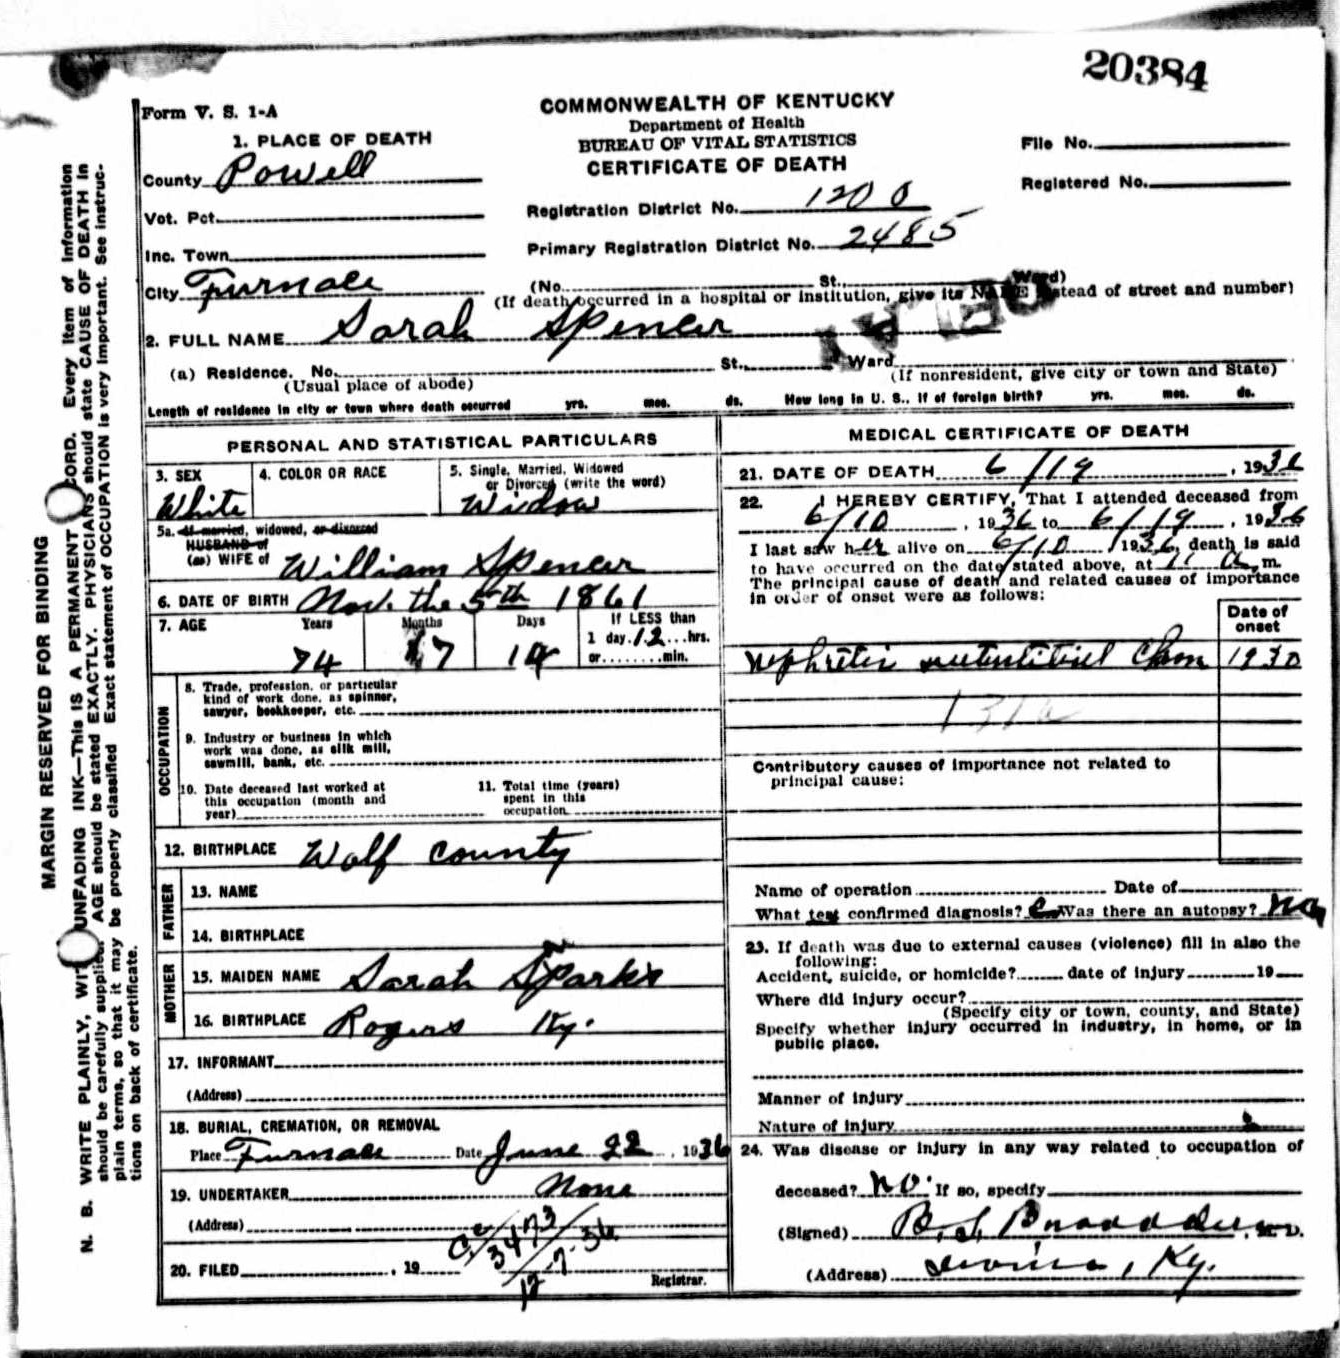 20384
Form V. S. 1-A
COMMONWEALTH OF KENTUCKY
Department of Health
BUREAU OF VITAL STATISTICS
CERTIFICATE OF DEATH
File No.
Registered No.
1. PLACE OF DEATH
County Powell
Vot. Pct.
Inc. Town
City Furnace
Registration District No. 1200
Primary Registration District No. 2485
(No. St., Ward)
(If death occurred in a hospital or institution, give its NAME instead of street and number)
DELAY
2. FULL NAME Sarah Spencer
(a) Residence. No. St., Ward
(Usual place of abode) (If nonresident, give city or town and State)
Length of residence in city or town where death occurred yrs. mos. ds. How long in U. S., if of foreign birth? yrs. mos. ds.
PERSONAL AND STATISTICAL PARTICULARS
3. SEX 4. COLOR OR RACE 5. Single, Married, Widowed or Divorced (write the word)
White Widow
5a. If married, widowed, or divorced
HUSBAND of
(or) WIFE of William Spencer
6. DATE OF BIRTH Nov. the 5th 1861
7. AGE Years Months Days If LESS than
1 day, 12 hrs.
or min.
74 7 14
OCCUPATION
8. Trade, profession, or particular
kind of work done, as spinner,
sawyer, bookkeeper, etc.
9. Industry or business in which
work was done, as silk mill,
sawmill, bank, etc.
10. Date deceased last worked at
this occupation (month and
year)
11. Total time (years)
spent in this
occupation
12. BIRTHPLACE Wolf county
FATHER
13. NAME
14. BIRTHPLACE
MOTHER
15. MAIDEN NAME Sarah Sparks
16. BIRTHPLACE Rogers Ky.
17. INFORMANT
(Address)
18. BURIAL, CREMATION, OR REMOVAL
Place Furnace Date June 22, 1936
19. UNDERTAKER None
(Address)
20. FILED , 19
3473
12-7-36
Registrar.
MEDICAL CERTIFICATE OF DEATH
21. DATE OF DEATH 6/19, 1936
22. I HEREBY CERTIFY, That I attended deceased from
6/10, 1936 to 6/19, 1936
I last saw her alive on 6/10, 1936, death is said
to have occurred on the date stated above, at 11 a.m.
The principal cause of death and related causes of importance
in order of onset were as follows:
Date of
onset
Nephritis 1930
Contributory causes of importance not related to
principal cause:
Name of operation Date of
What test confirmed diagnosis? Was there an autopsy? No
23. If death was due to external causes (violence) fill in also the
following:
Accident, suicide, or homicide? date of injury 19
Where did injury occur?
(Specify city or town, county, and State)
Specify whether injury occurred in industry, in home, or in
public place.
Manner of injury
Nature of injury
24. Was disease or injury in any way related to occupation of
deceased? No. If so, specify
(Signed) M. D.
(Address) Ky.
MARGIN RESERVED FOR BINDING
N. B. WRITE PLAINLY, UNFADING INK—This is A PERMANENT Every item of information
should be carefully supplied. AGE should be stated EXACTLY. PHYSICIANS should state CAUSE OF DEATH in
plain terms, so that it may be properly classified Exact statement of OCCUPATION is very important. See instruc-
tions on back of certificate.